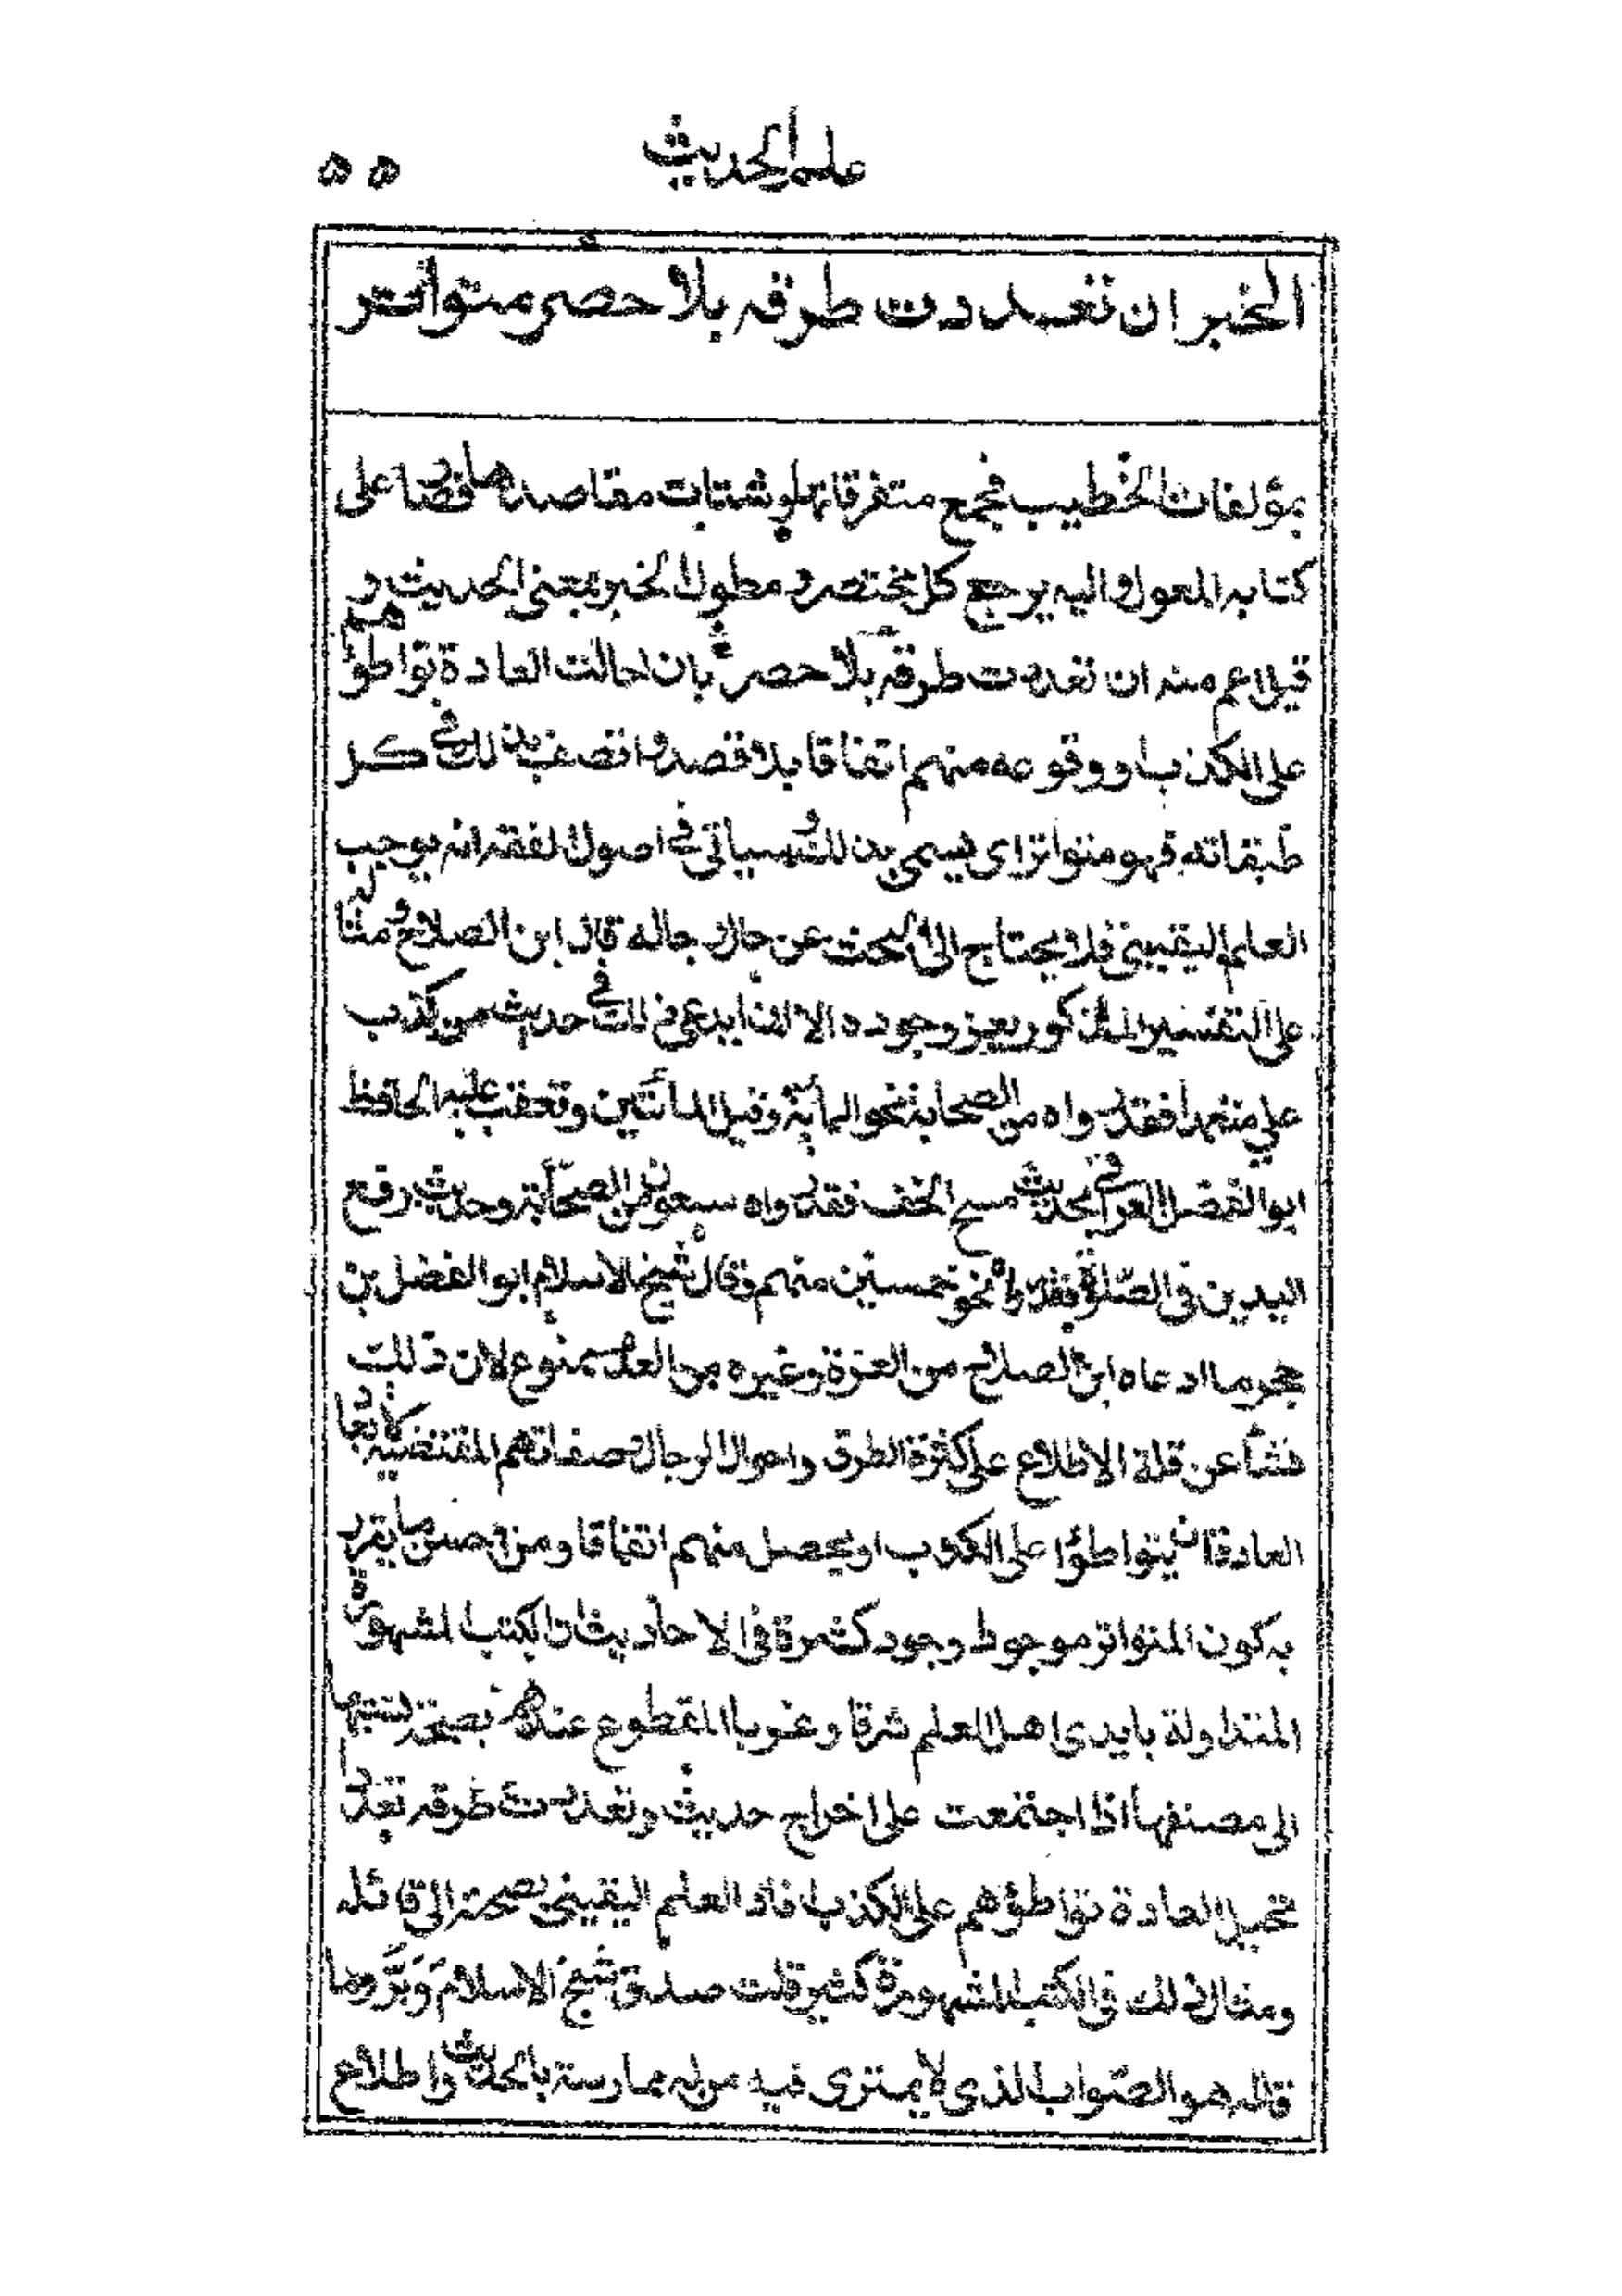 علم الحديث ٥٥
الخبر ان تعددت طرقه بلا حصر متواتر
بمؤلفات الخطيب فجمع متفرقاتها وشتات مقاصدها فصار على
كتابه المعول واليه يرجع كل مختصر و مطول الخبر بمعنى الحديث و
قيل اعم منه ان تعددت طرقه بلا حصر بان احالت العادة تواطؤهم
على الكذب او وقوعه منهم اتفاقا بلا قصد واتصف بذلك في كل
طبقاته فهو متواتر اى يسمى بذلك وسياتى فى اصول الفقه انه يوجب
العلم اليقينى فلا يحتاج الى البحث عن حال رجاله قال ابن الصلاح و مثاله
على التفسير المذكور يعز وجوده الا ان يدعى ذلك فى حديث من كذب
علي متعمدا فقد رواه من الصحابة نحو المائة وقيل المائتين وتعقب عليه الحافظ
ابو الفضل العراقى بحديث مسح الخف فقد رواه سبعون من الصحابة وحديث رفع
اليدين فى الصلوة فقد رواه نحو خمسين منهم وقال شيخ الاسلام ابو الفضل بن
حجر ما ادعاه ابن الصلاح من العزة وغيره من العدم ممنوع لان ذلك
نشأ عن قلة الاطلاع على كثرة الطرق واحوال الرجال وصفاتهم المقتضية لابعاد
العادة ان يتواطؤا على الكذب او يحصل منهم اتفاقا ومن احسن ما يقرر
به كون المتواتر موجودا وجود كثرة فى الاحاديث ان الكتب المشهورة
المتداولة بايدى اهل العلم شرقا وغربا المقطوع عندهم بصحة نسبتها
الى مصنفها اذا اجتمعت على اخراج حديث وتعددت طرقه تعددا
تحيل العادة تواطؤهم على الكذب افاد العلم اليقينى بصحته الى قائله
ومثال ذلك فى الكتب المشهورة كثير قلت صدق شيخ الاسلام وَبَرَّ وما
قاله هو الصواب الذى لا يمترى فيه من له ممارسة بالحديث واطلاع